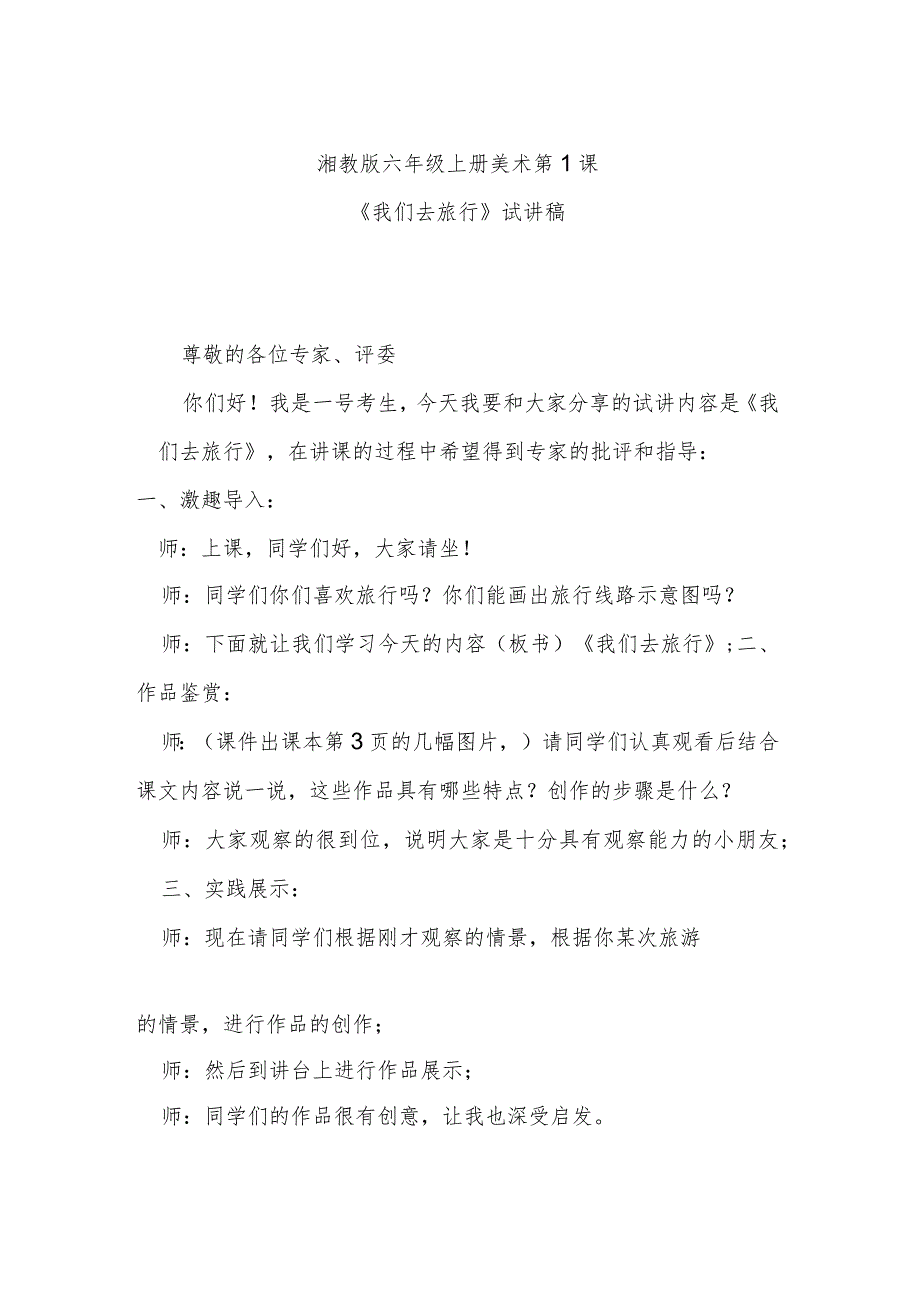 湘教版六年级上册美术第1课
《我们去旅行》试讲稿
尊敬的各位专家、评委
你们好！我是一号考生，今天我要和大家分享的试讲内容是《我
们去旅行》，在讲课的过程中希望得到专家的批评和指导：
一、激趣导入：
师：上课，同学们好，大家请坐！
师：同学们你们喜欢旅行吗？你们能画出旅行线路示意图吗？
师：下面就让我们学习今天的内容（板书）《我们去旅行》;二、
作品鉴赏：
师：（课件出课本第3页的几幅图片，）请同学们认真观看后结合
课文内容说一说，这些作品具有哪些特点？创作的步骤是什么？
师：大家观察的很到位，说明大家是十分具有观察能力的小朋友；
三、实践展示：
师：现在请同学们根据刚才观察的情景，根据你某次旅游
的情景，进行作品的创作；
师：然后到讲台上进行作品展示；
师：同学们的作品很有创意，让我也深受启发。